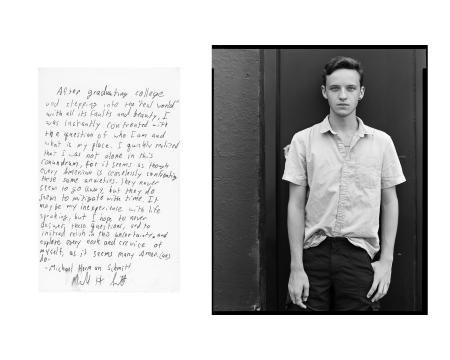 After graduating college
and stepping into the "real world"
with all its faults and beauty, I
was instantly confronted with
the question of who I am and
what is my place. I quickly realized
that I was not alone in this
conundrum, for it seems as though
every American is ceaselessly confronting
these same anxieties. They never
seem to go away, but they do
seem to mitigate with time. It
may be my inexperience with life
speaking, but I hope to never
answer these questions, and to
instead relish in this uncertainty, and
explore every nook and crevice of
myself, as it seems many Americans
do.
- Michael Herman Schmitt